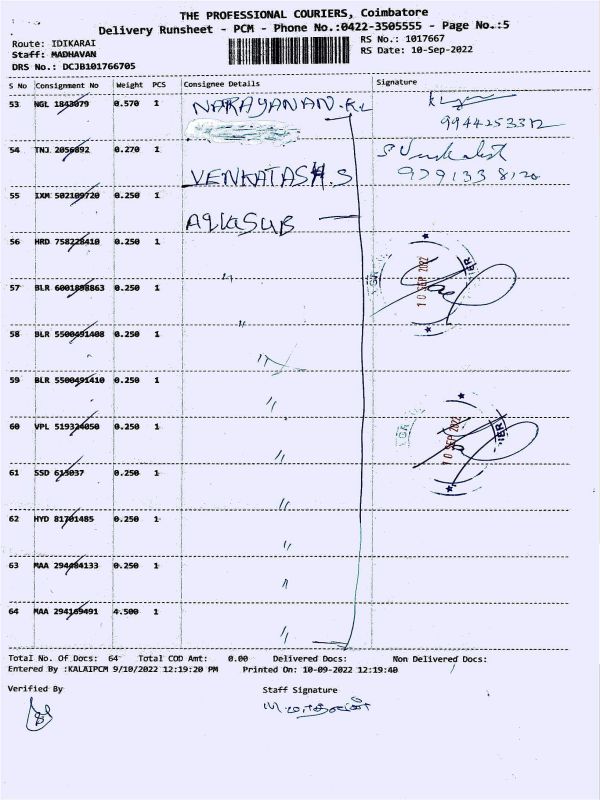 THE PROFESSIONAL COURIERS, Coimbatore
Delivery Runsheet - PCM - Phone No.:0422-3505555 - Page No.:5
Route: IDIKARAI
RS No.: 1017667
Staff: MADHAVAN
RS Date: 10-Sep-2022
DRS No.: DCJB101766705
S No Consignment No Weight PCS Consignee Details Signature
53 NGL 1843079 0.570 1 NARAYANAN.K.L
9944253312
54 TNJ 2056892 0.270 1 VENKATASH.S
9791338120
55 IXM 502109720 0.250 1
56 HRD 758228410 0.250 1 "
10 SEP 2022
57 BLR 6001898863 0.250 1 "
58 BLR 5500491408 0.250 1 "
59 BLR 5500491410 0.250 1 "
60 VPL 519324050 0.250 1 "
10 SEP 2022
61 SSD 613037 0.250 1 "
62 HYD 81701485 0.250 1 "
63 MAA 294484133 0.250 1 "
64 MAA 294169491 4.500 1 "
Total No. Of Docs: 64 Total COD Amt: 0.00 Delivered Docs: Non Delivered Docs:
Entered By :KALAIPCM 9/10/2022 12:19:20 PM Printed On: 10-09-2022 12:19:40
Verified By Staff Signature